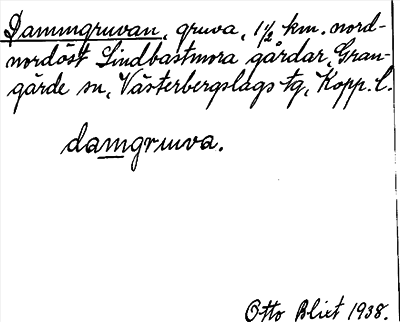 Dammgruvan, gruva, 1½ km. nord-
nordöst Lindbastmora gårdar, Gran-
gärde sn, Västerbergslags tg, Kopp. l.
damgruva.
Otto Blixt 1938.